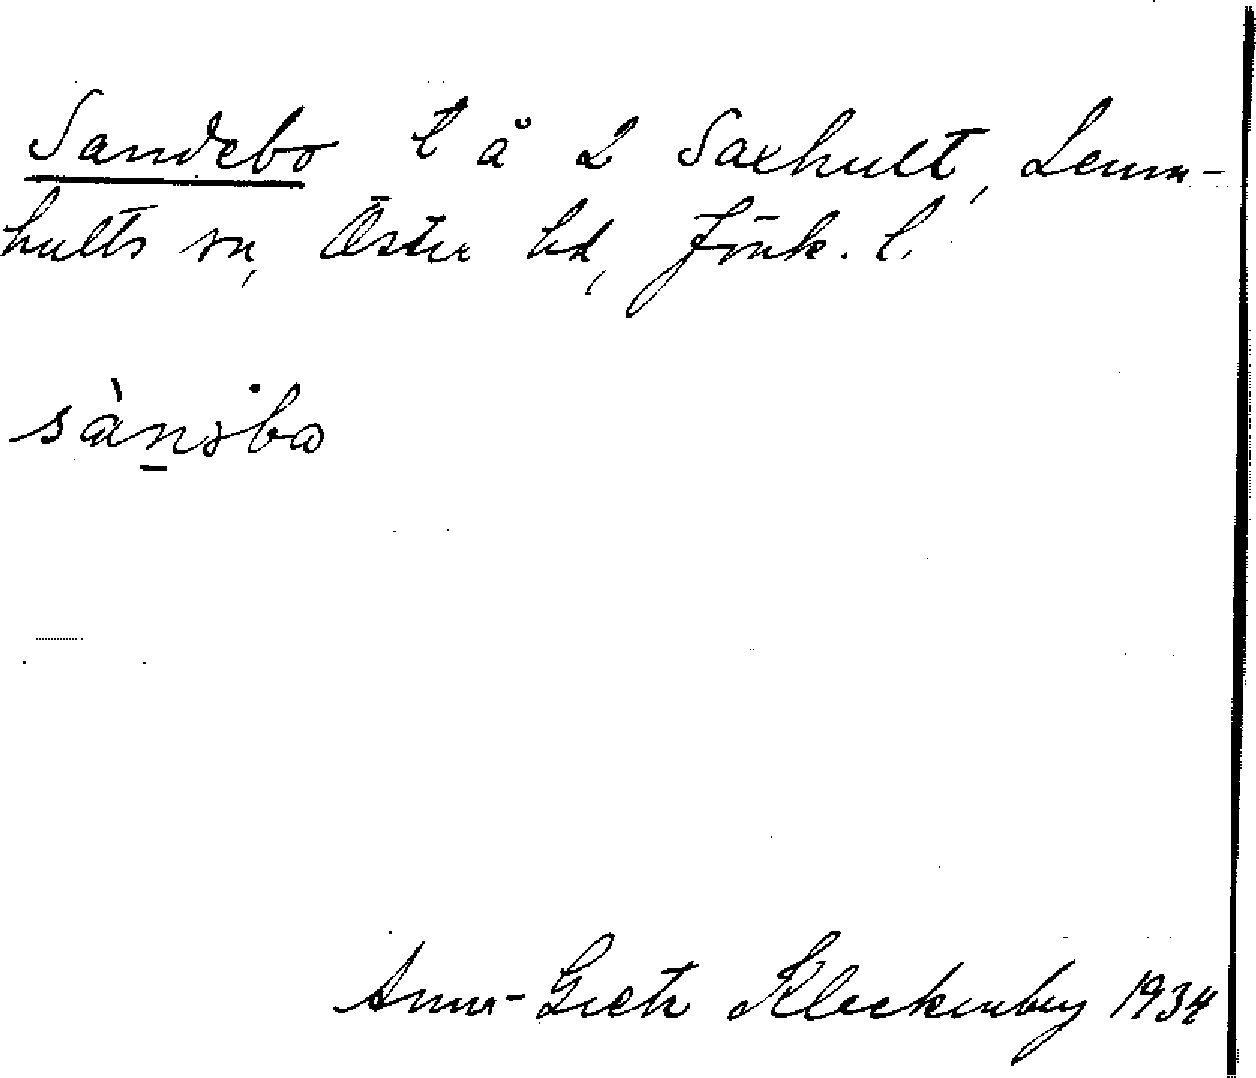 Sandebo l å 2 Saxhult, Lemn-
hults sn, Öster hd, Jönk. l.
sànəbo
Anna-Greta Kleckenberg 1934